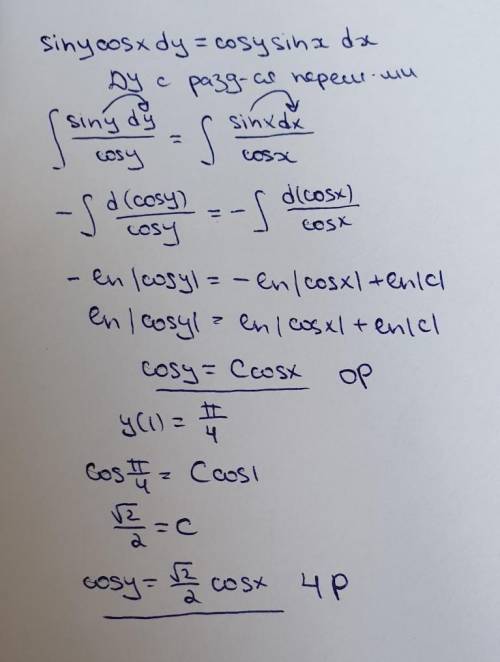 siny cosx dy = cosy sinx dx
ДУ с разд-ся перем-ми
∫ siny dy / cosy = ∫ sinx dx / cosx
- ∫ d(cosy) / cosy = - ∫ d(cosx) / cosx
- ln|cosy| = - ln|cosx| + ln|C|
ln|cosy| = ln|cosx| + ln|C|
cosy = C cosx ОР
y(1) = π/4
cos π/4 = C cos1
√2/2 = C
cosy = √2/2 cosx ЧР